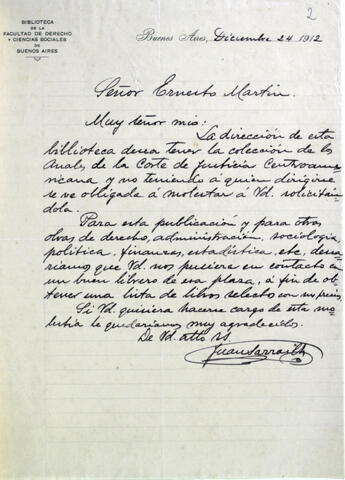 2
BIBLIOTECA
DE LA
FACULTAD DE DERECHO
Y CIENCIAS SOCIALES
DE
BUENOS AIRES
Buenos Aires, Diciembre 24 1912
Señor Ernesto Martin.
Muy señor mio:
La dirección de esta
biblioteca desea tener la coleccion de los
Anales de la Corte de Justicia Centroame-
ricana y no teniendo á quien dirigirse
se ve obligada á molestar á Vd. solicitán-
dola.
Para esta publicación y para otras
obras de derecho, administración, sociología,
política, finanzas, estadística, etc, desea-
riamos que Vd. nos pusiera en contacto con
un buen librero de esa plaza, á fin de ob-
tener una lista de libros selectos con sus precios.
Si Vd. quisiera hacerse cargo de esta mo-
lestia le quedariamos muy agradecidos.
De Vd. atto. SS.
Juan